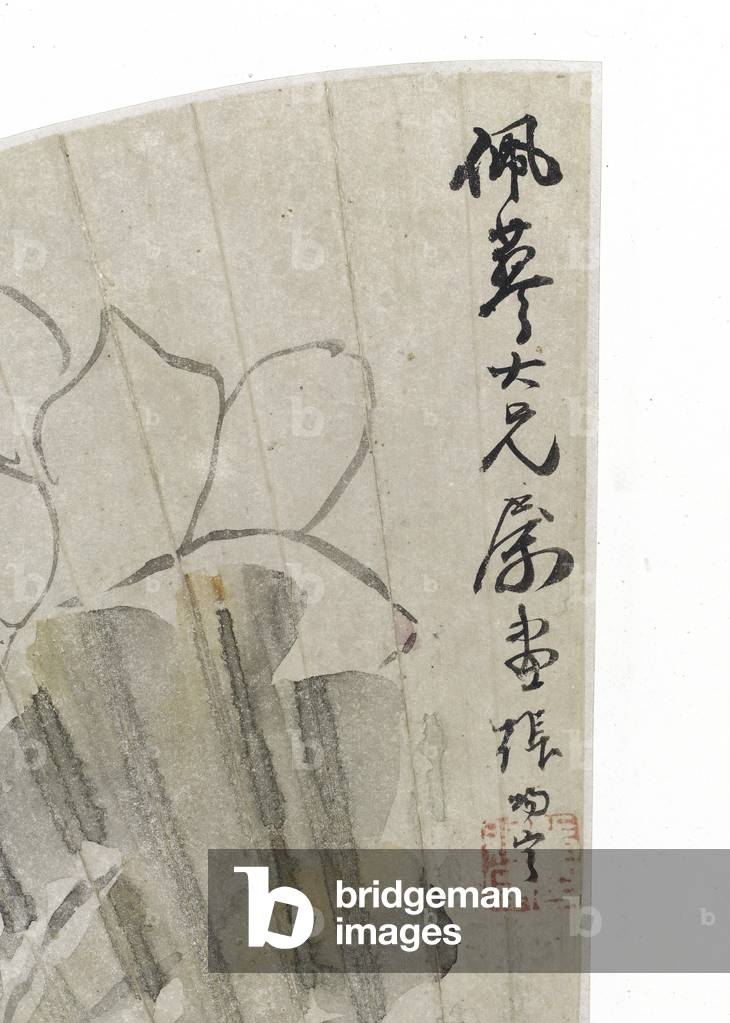 佩大兄属畫張
b bridgeman
images